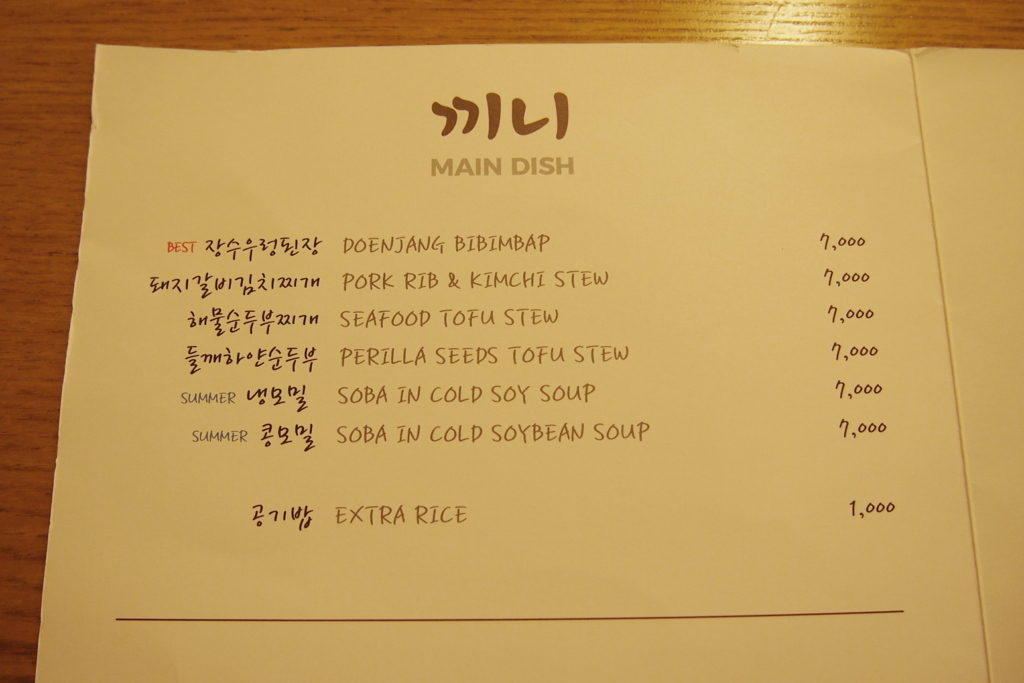 끼니
MAIN DISH
BEST 장수우렁된장 DOENJANG BIBIMBAP 7,000
돼지갈비김치찌개 PORK RIB & KIMCHI STEW 7,000
해물순두부찌개 SEAFOOD TOFU STEW 7,000
들깨하얀순두부 PERILLA SEEDS TOFU STEW 7,000
SUMMER 냉모밀 SOBA IN COLD SOY SOUP 7,000
SUMMER 콩모밀 SOBA IN COLD SOYBEAN SOUP 7,000
공기밥 EXTRA RICE 1,000